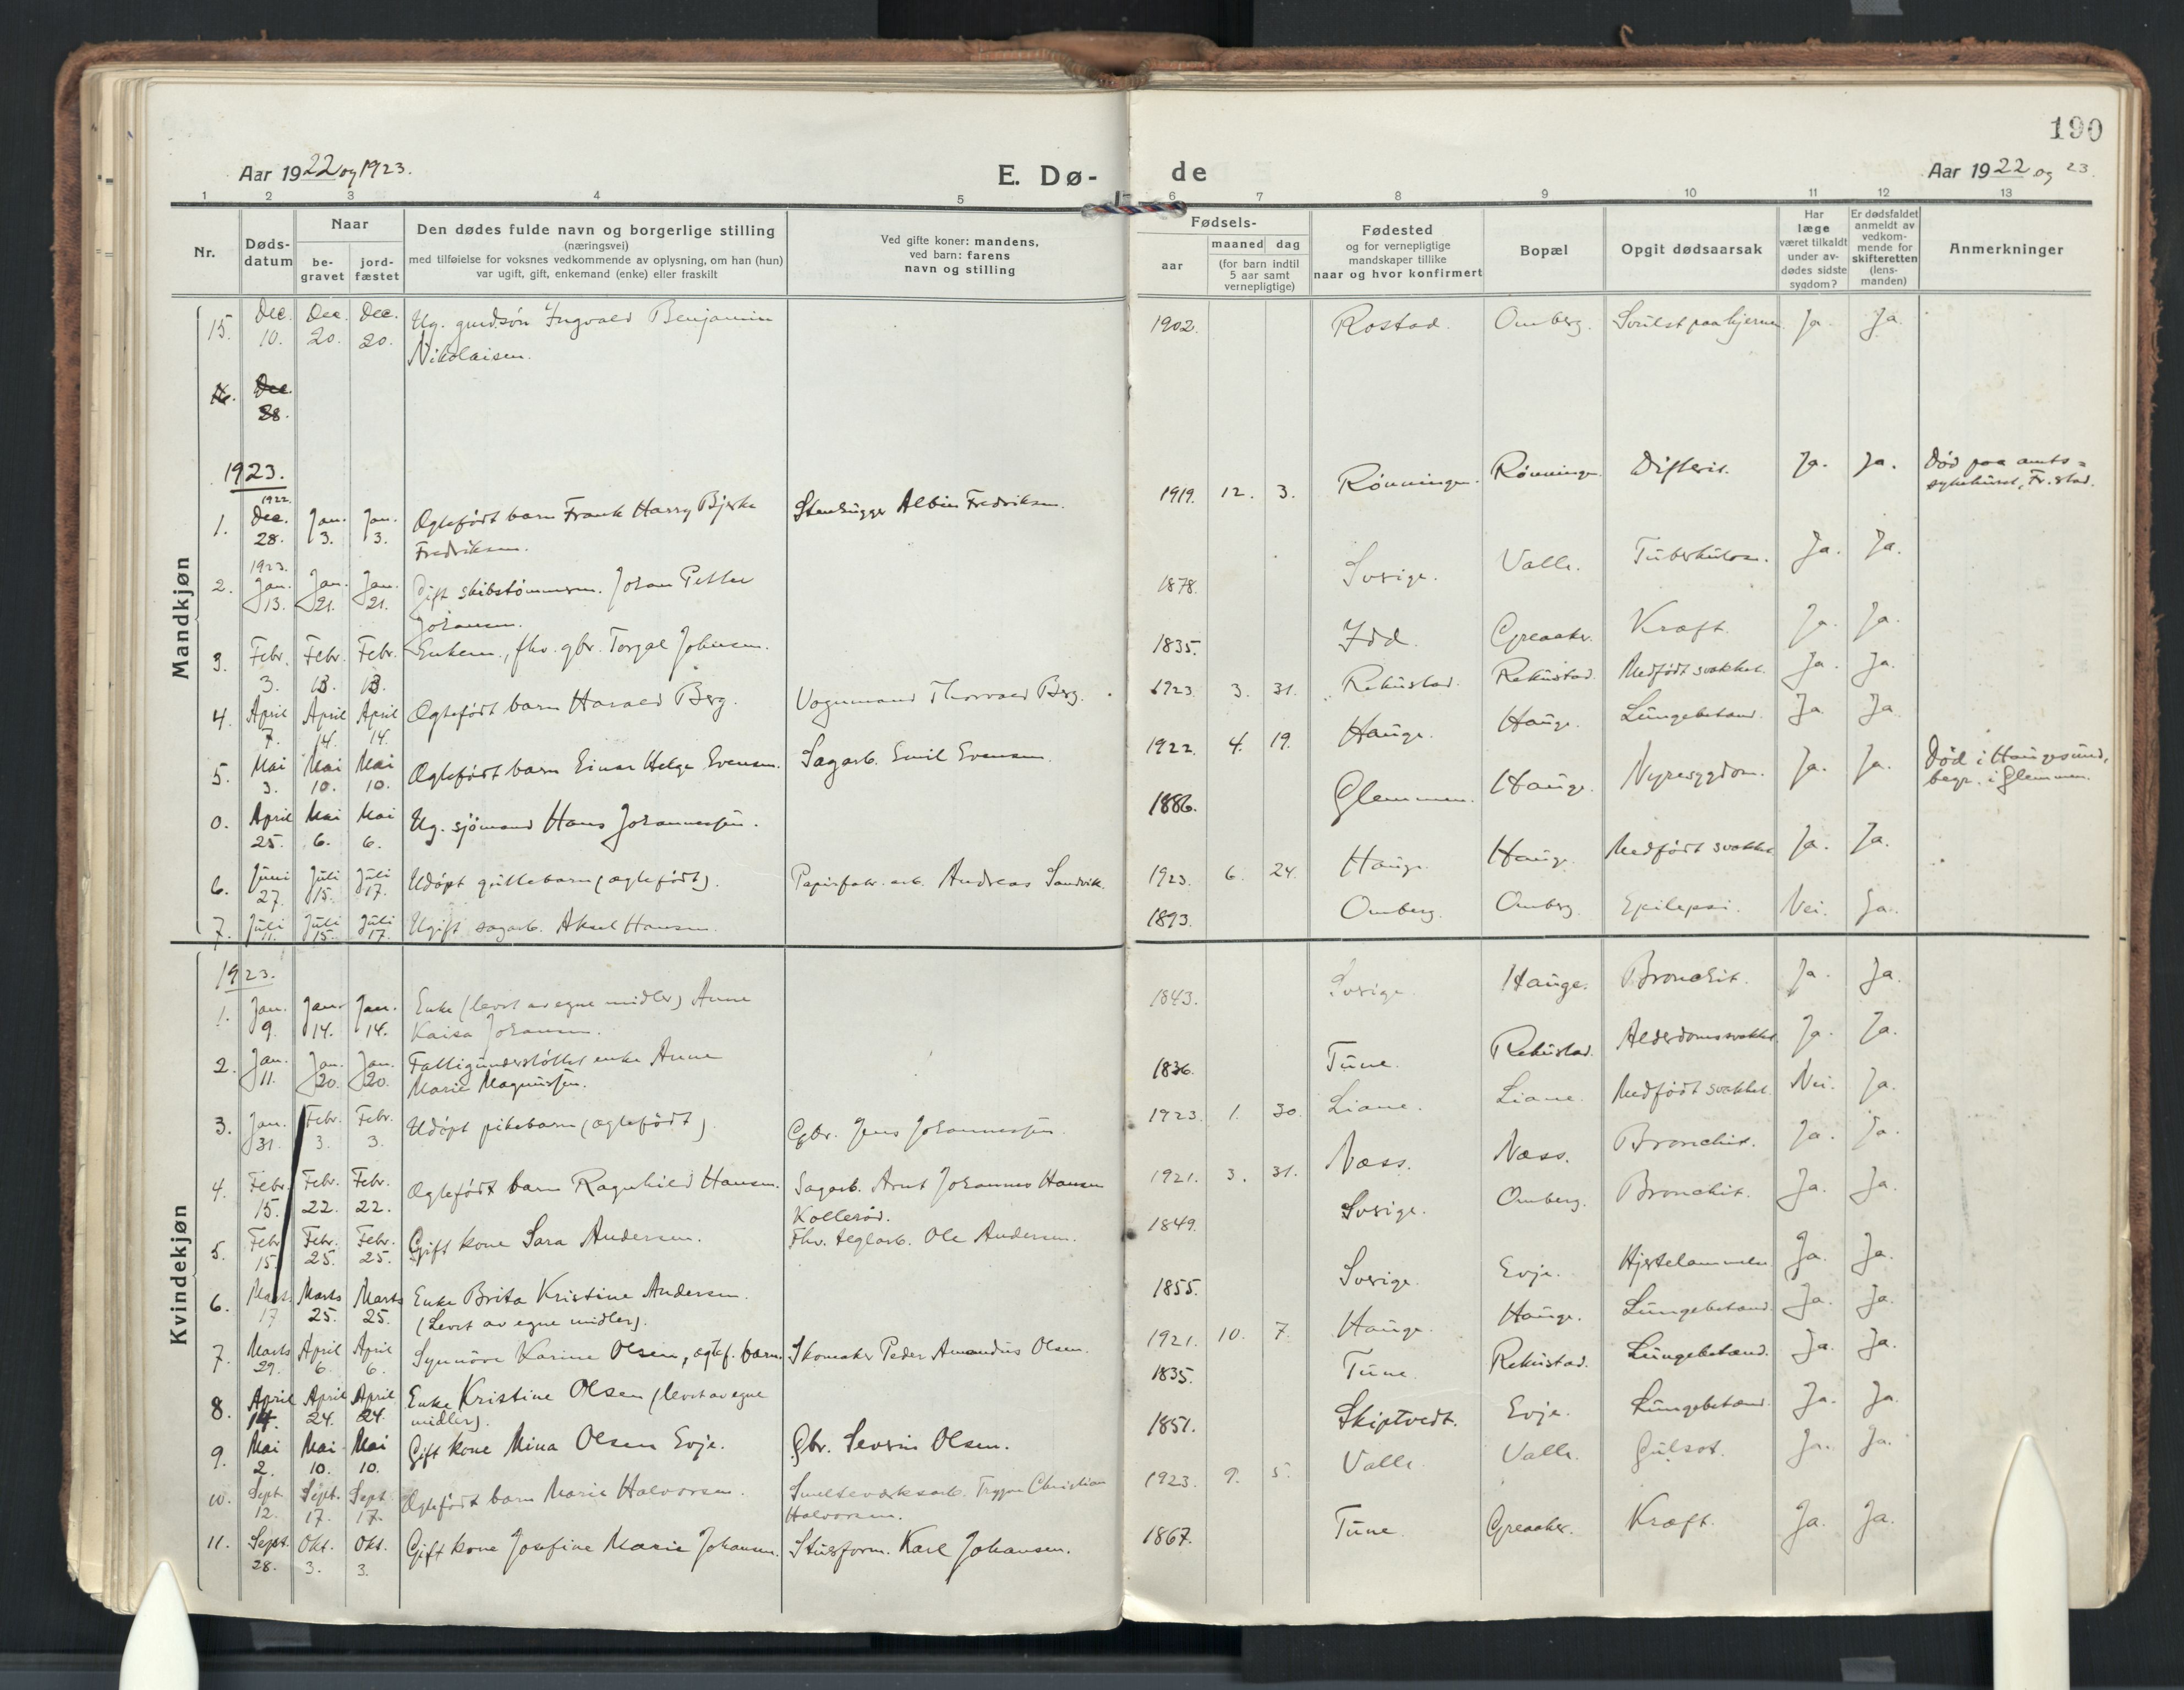 190
Aar 1922 og 1923.
E. Dø-
de
Aar 1922 og 23.
1 2 3 4 5 6 7 8 9 10 11 12 13
Nr.
Døds-
datum
Naar
be-
gravet
jord-
fæstet
Den dødes fulde navn og borgerlige stilling
(næringsvei)
med tilføielse for voksnes vedkommende av oplysning, om han (hun)
var ugift, gift, enkemand (enke) eller fraskilt
Ved gifte koner: mandens,
ved barn: farens
navn og stilling
Fødsels-
aar
maaned dag
(for barn indtil
5 aar samt
vernepligtige)
Fødested
og for vernepligtige
mandskaper tillike
naar og hvor konfirmert
Bopæl
Opgit dødsaarsak
Har
læge
været tilkaldt
under av-
dødes sidste
sygdom?
Er dødsfaldet
anmeldt av
vedkom-
mende for
skifteretten
(lens-
manden)
Anmerkninger
Mandkjøn
15. Dec. 10. Dec. 20. Dec. 20. Ug. gmdsøn Ingvald Benjamin
Nikolaisen. 1902. Rostad. Omberg. Svulst paa hjernen Ja. Ja.
16. Dec 28.
1923.
1. 1922. Dec. 28. Jan. 3. Jan. 3. Ægtefødt barn Frank Harry Bjerke
Fredriksen. Stenhugger Albin Fredriksen. 1919. 12. 3. Rønningen. Rønningen. Difterit. Ja. Ja. Død paa amts-
sykehuset, Fr.stad.
2. 1923. Jan. 13. Jan. 21. Jan. 21. Gift skibstømmerm. Johan Petter
Johansen. 1878. Sverige. Valle. Tuberkulose. Ja. Ja.
3. Febr. 3. Febr. 13. Febr. 13. Enkem., fhv. gbr. Torgal Johnsen. 1835. Idd. Greaaker. Kræft. Ja. Ja.
4. April 7. April 14. April 14. Ægtefødt barn Harald Berg. Vognmand Thorvald Berg. 1923. 3. 31. Rekustad. Rekustad. Medfødt svakhet. Ja. Ja.
5. Mai 3. Mai 10. Mai 10. Ægtefødt barn Einar Helge Evensen. Sagarb. Emil Evensen. 1922. 4. 19. Hauge. Hauge. Lungebetænd. Ja. Ja
0. April 25. Mai 6. Mai 6. Ug. sjömand Hans Johannessen. 1886. Glemmen. Hauge. Nyresygdom. Ja. Ja. Død i Haugesund,
begr. i Glemmen.
6. Juni 27. Juli 15. Juli 17. Udøpt guttebarn (ægtefødt). Papirfabr. arb. Andreas Sandvik. 1923. 6. 24. Hauge. Hauge. Medfødt svakhet Ja. Ja.
7. Juli 11. Juli 15. Juli 17. Ugift sagarb. Aksel Hansen. 1893. Omberg. Omberg. Epilepsi. Nei. Ja.
Kvindekjøn
1923.
1. Jan. 9. Jan. 14. Jan. 14. Enke (levet av egne midler) Anne
Kaisa Johansen. 1843. Sverige. Hauge. Bronchit. Ja. Ja.
2. Jan. 11. Jan. 20. Jan. 20. Fattigunderstøttet enke Anne
Marie Magnussen. 1836. Tune. Rekustad. Alderdomssvakhet. Ja. Ja.
3. Jan. 31. Febr. 3. Febr. 3. Udøpt pikebarn (ægtefødt). Gbr. Jens Johannessen. 1923. 1. 30. Liane. Liane. Medfødt svakhet. Nei. Ja.
4. Febr. 15. Febr. 22. Febr. 22. Ægtefødt barn Ragnhild Hansen. Sagarb. Arnt Johannes Hansen
Kollerød. 1921. 3. 31. Næss. Næss. Bronchit. Ja. Ja.
5. Febr. 15. Febr. 25. Febr. 25. Gift kone Sara Andersen. Fhv. teglarb. Ole Andersen. 1849. Sverige. Omberg. Bronchit. Ja. Ja.
6. Marts 17 Marts 25. Marts 25. Enke Brita Kristine Andersen.
(Levet av egne midler). 1855. Sverige. Evje. Hjertelammelse Ja. Ja.
7. Marts 29. April 6. April 6. Synnöve Karine Olsen, ægtef. barn. Skomaker Peder Amandus Olsen. 1921. 10. 7. Hauge. Hauge. Lungebetænd. Ja. Ja.
8. April 14. April 24. April 24. Enke Kristine Olsen (levet av egne
midler). 1835. Tune. Rekustad. Lungebetænd. Ja. Ja.
9. Mai 2. Mai 10. Mai 10. Gift kone Mina Olsen Evje. Gbr. Severin Olsen. 1851. Skiptvedt. Evje. Lungebetænd. Ja. Ja.
10. Sept. 12. Sept. 17. Sept. 17. Ægtefødt barn Marie Halvorsen. Smelteverksarb. Trygve Christian
Halvorsen. 1923. 9. 5. Valle. Valle. Gulsot. Ja. Ja.
11. Sept. 28. Okt. 3. Okt. 3. Gift kone Josefine Marie Johansen. Stuerform. Karl Johansen. 1867. Tune. Greaaker. Kræft. Ja. Ja.